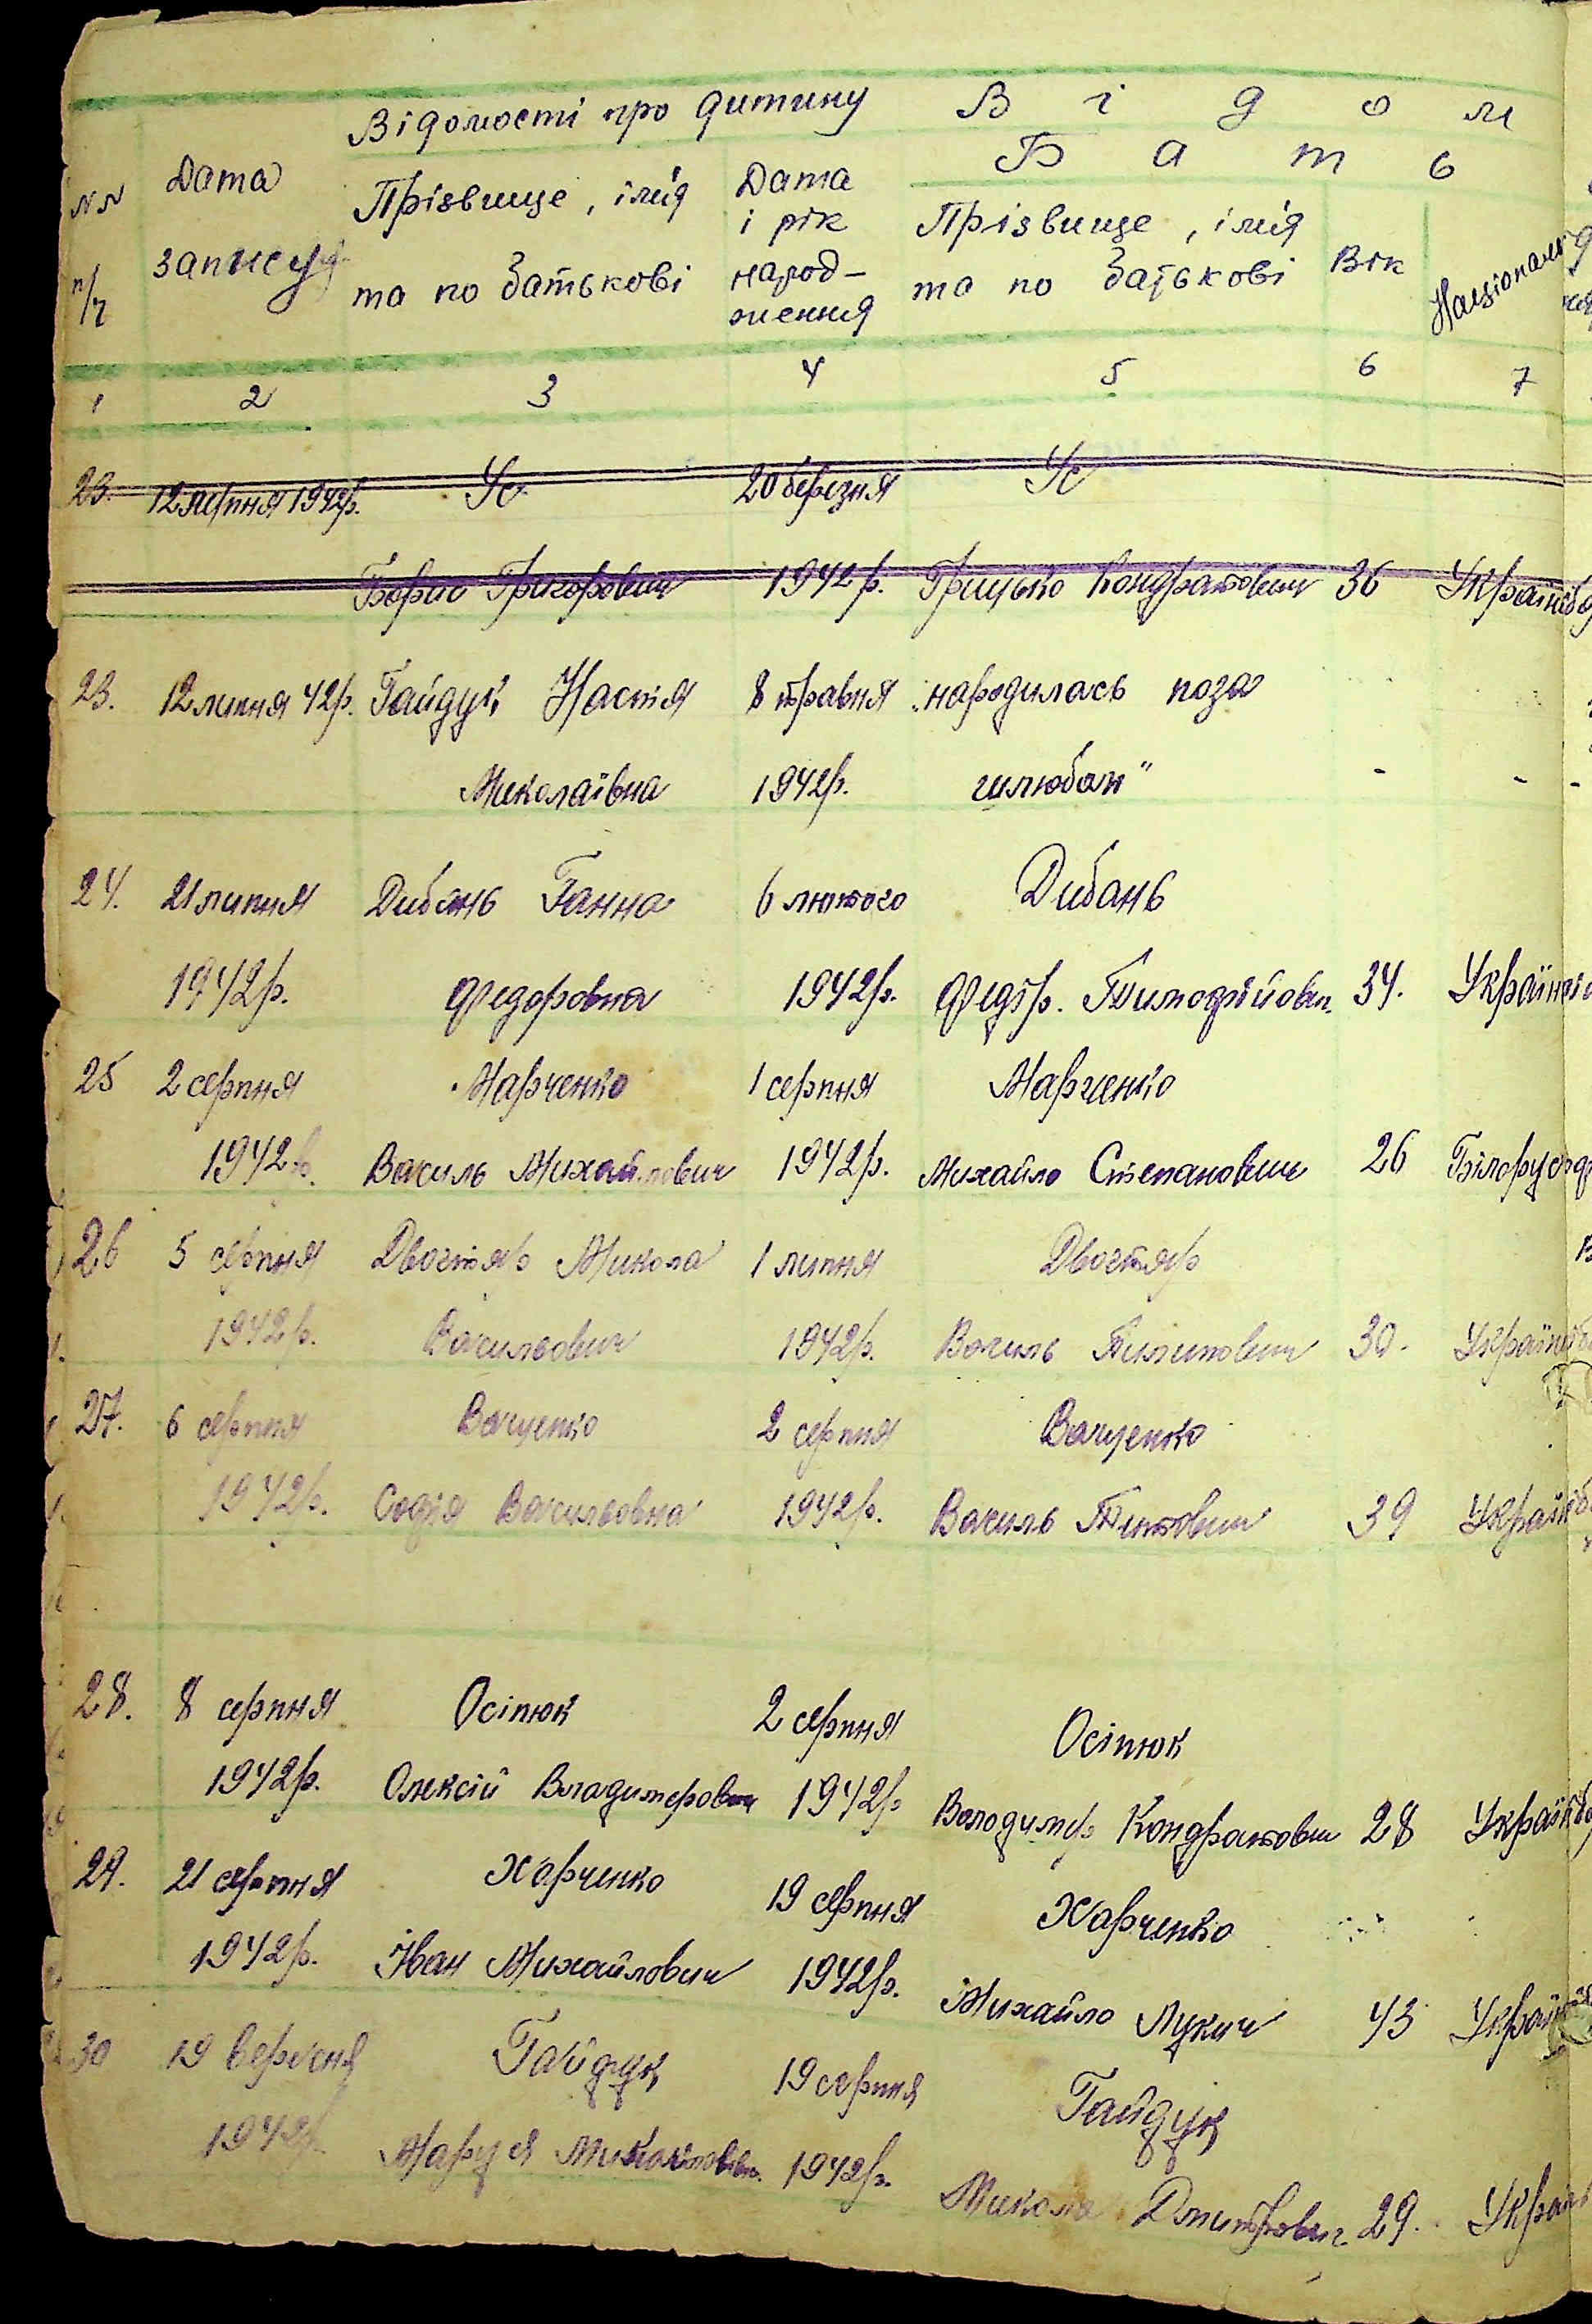 Відомості про дитину В і д о м
Б а т ь
NN Дата Прізвище, ім'я Дата Прізвище, ім'я Вік
п/ч запису та по батькові і рік та по батькові
народ-
ження
1 2 3 4 5 6 7
23. 12 липня 1942р. Ус 20 березня Ус
Борис Григорович 1942 р. Грицько Кондратович 36
23. 12 липня 42р. Гайдук Настя 8 травня „народилась поза
Миколаївна 1942р. шлюбом" - -
24. 21 липня Дибань Ганна 6 лютого Дибань
1942р. Федоровна 1942р. Федір. Тимофійович. 34.
25 2 серпня Марченко 1 серпня Марченко
1942р. Василь Михайлович 1942р. Михайло Степанович 26
26 5 серпня Двогтяр Микола 1 липня Двогтяр
1942р. Васильович 1942р. Василь Пилипович 30.
27. 6 серпня Ващенко 2 серпня Ващенко
1942р. Софія Васильовна 1942р. Василь Титович 39
28. 8 серпня Осіпюк 2 серпня Осіпюк
1942р. Олексій Владимерович 1942р Володимер Кондратович 28
29. 21 серпня Харченко 19 серпня Харченко
1942р. Іван Михайлович 1942р. Михайло Лукич 43
30 19 вересня Гайдук 19 серпня Гайдук
1942р. Маруся 1942р. Микола Дмитрович 29.